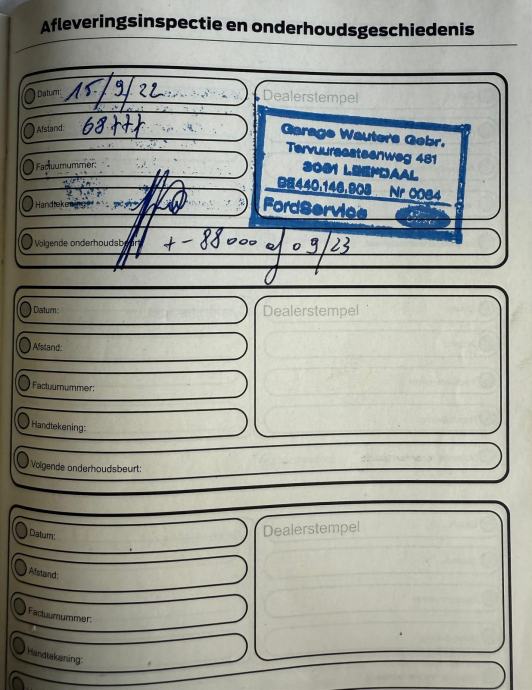 Afleveringsinspectie en onderhoudsgeschiedenis
Datum: 15/9/22
Dealerstempel
Afstand: 68777
Garage Wauters Gebr.
Tervuursesteenweg 481
3061 LEEFDAAL
Factuurnummer:
BE440.146.808 Nr 0064
Handtekening:
FordService
Ford
Volgende onderhoudsbeurt: + - 88000 of 09/23
Datum:
Dealerstempel
Afstand:
Factuurnummer:
Handtekening:
Volgende onderhoudsbeurt:
Datum:
Dealerstempel
Afstand:
Factuurnummer:
Handtekening: